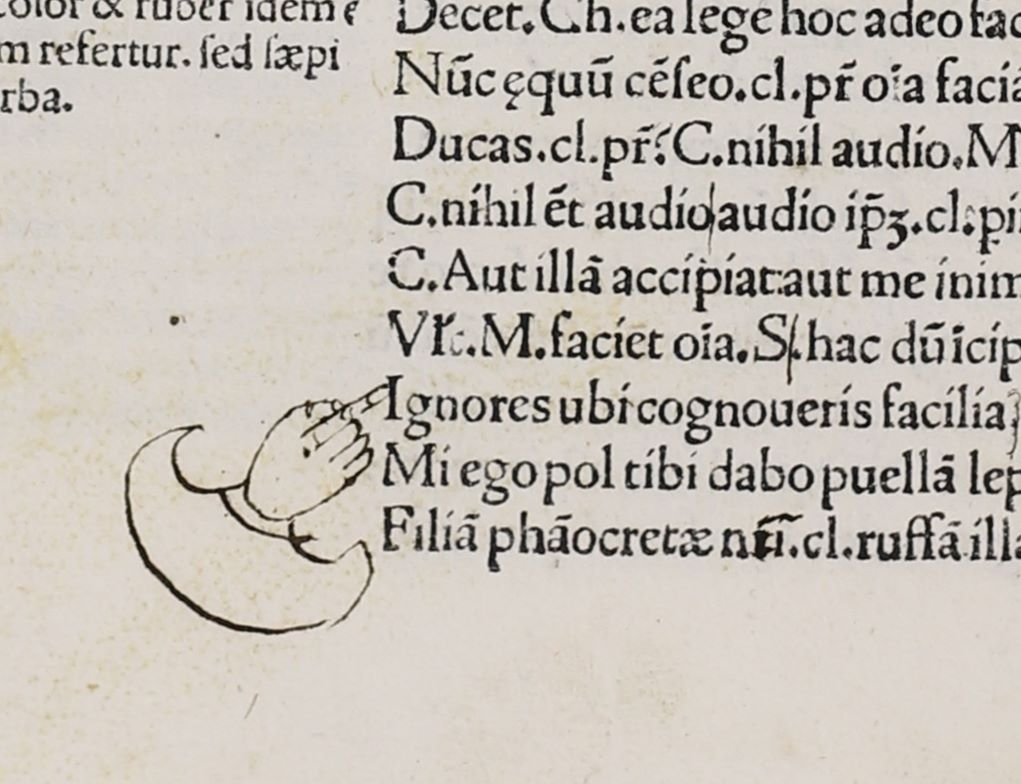 color & ruber idem e
m refertur. ſed ſæpi
rba.
Decet. Ch. ea lege hoc adeo fac
Nūc ęquū cēſeo. cl. pr̄ oīa faciā
Ducas. cl. pr̄: C. nihil audio. M
C. nihil ēt audio audio ip̄ꝫ. cl. pi
C. Aut illā accipiat: aut me inim
faciet oīa. S. hac dū icip
Ignores ubi cognoueris facilia
Mi ego pol tibi dabo puellā lep
Filiā phāocretæ nr̄i. cl. ruffā illa